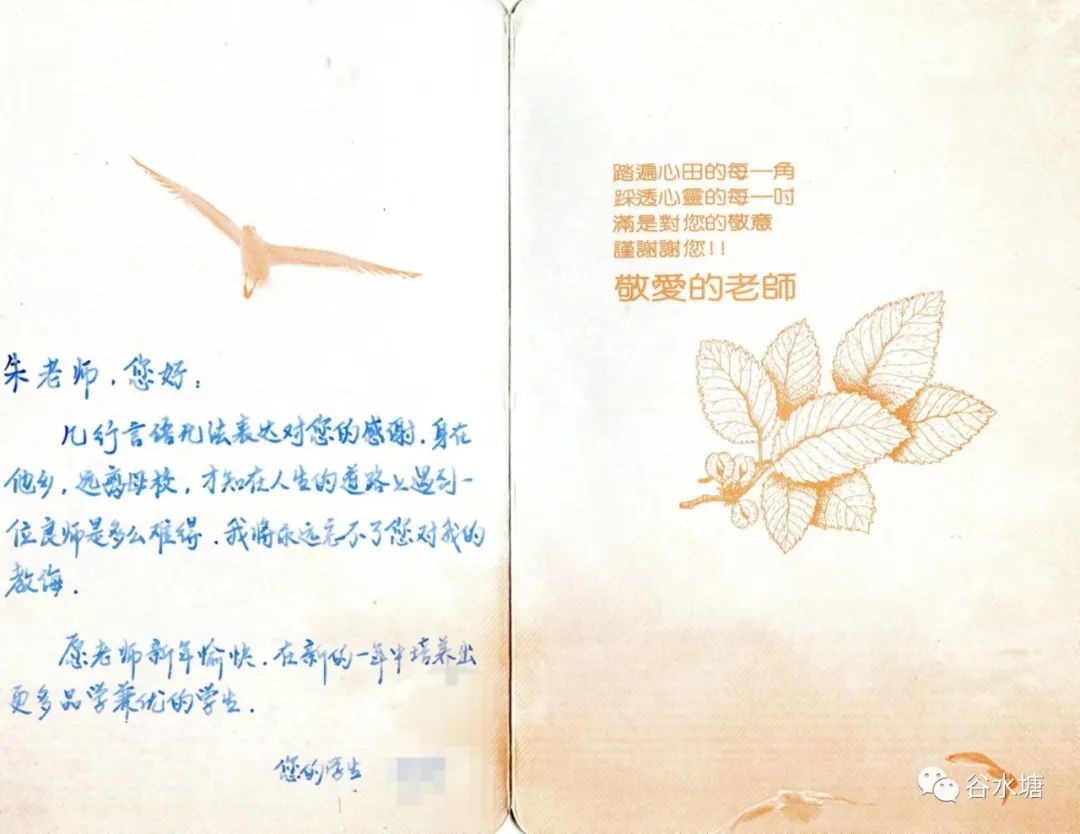 朱老师，您好：
几行言语无法表达对您的感谢．身在
他乡，远离母校，才知在人生的道路上遇到一
位良师是多么难得．我将永远忘不了您对我的
教诲．
愿老师新年愉快．在新的一年中培养出
更多品学兼优的学生．
您的学生
踏遍心田的每一角
踩透心靈的每一吋
滿是對您的敬意
謹謝謝您!!
敬愛的老師
谷水塘